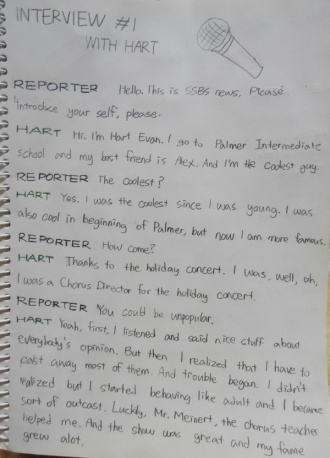 INTERVIEW #1
WITH HART
REPORTER Hello. This is SSBS news. Please
introduce your self, please.
HART Hi. I'm Hart Evan. I go to Palmer Intermediate
school and my best friend is Alex. And I'm the coolest guy.
REPORTER The coolest?
HART Yes. I was the coolest since I was young. I was
also cool in beginning of Palmer, but now I am more famous.
REPORTER How come?
HART Thanks to the holiday concert. I was, well, oh,
I was a Chorus Director for the holiday concert.
REPORTER You could be unpopular.
HART Yeah, first, I listened and said nice stuff about
everybody's opinion. But then I realized that I have to
cast away most of them. And trouble began. I didn't
realized but I started behaving like adult and I became
sort of outcast. Luckly, Mr. Meinert, the chorus teacher
helped me. And the show was great and my fame
grew alot.